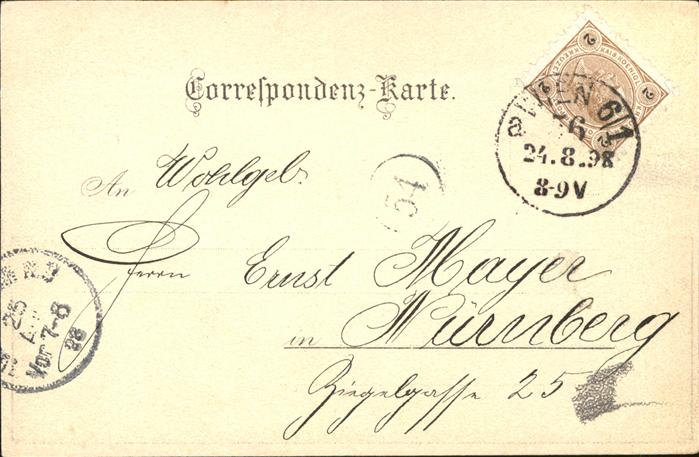 Correspondenz-Karte.
WIEN 6/1
76
24.8.98
8-9V
2
2
2
An Wohlgeb.
54
Herrn Ernst Mayer
in Nürnberg
Ziegelgasse 25
25
Vor 7-8
98